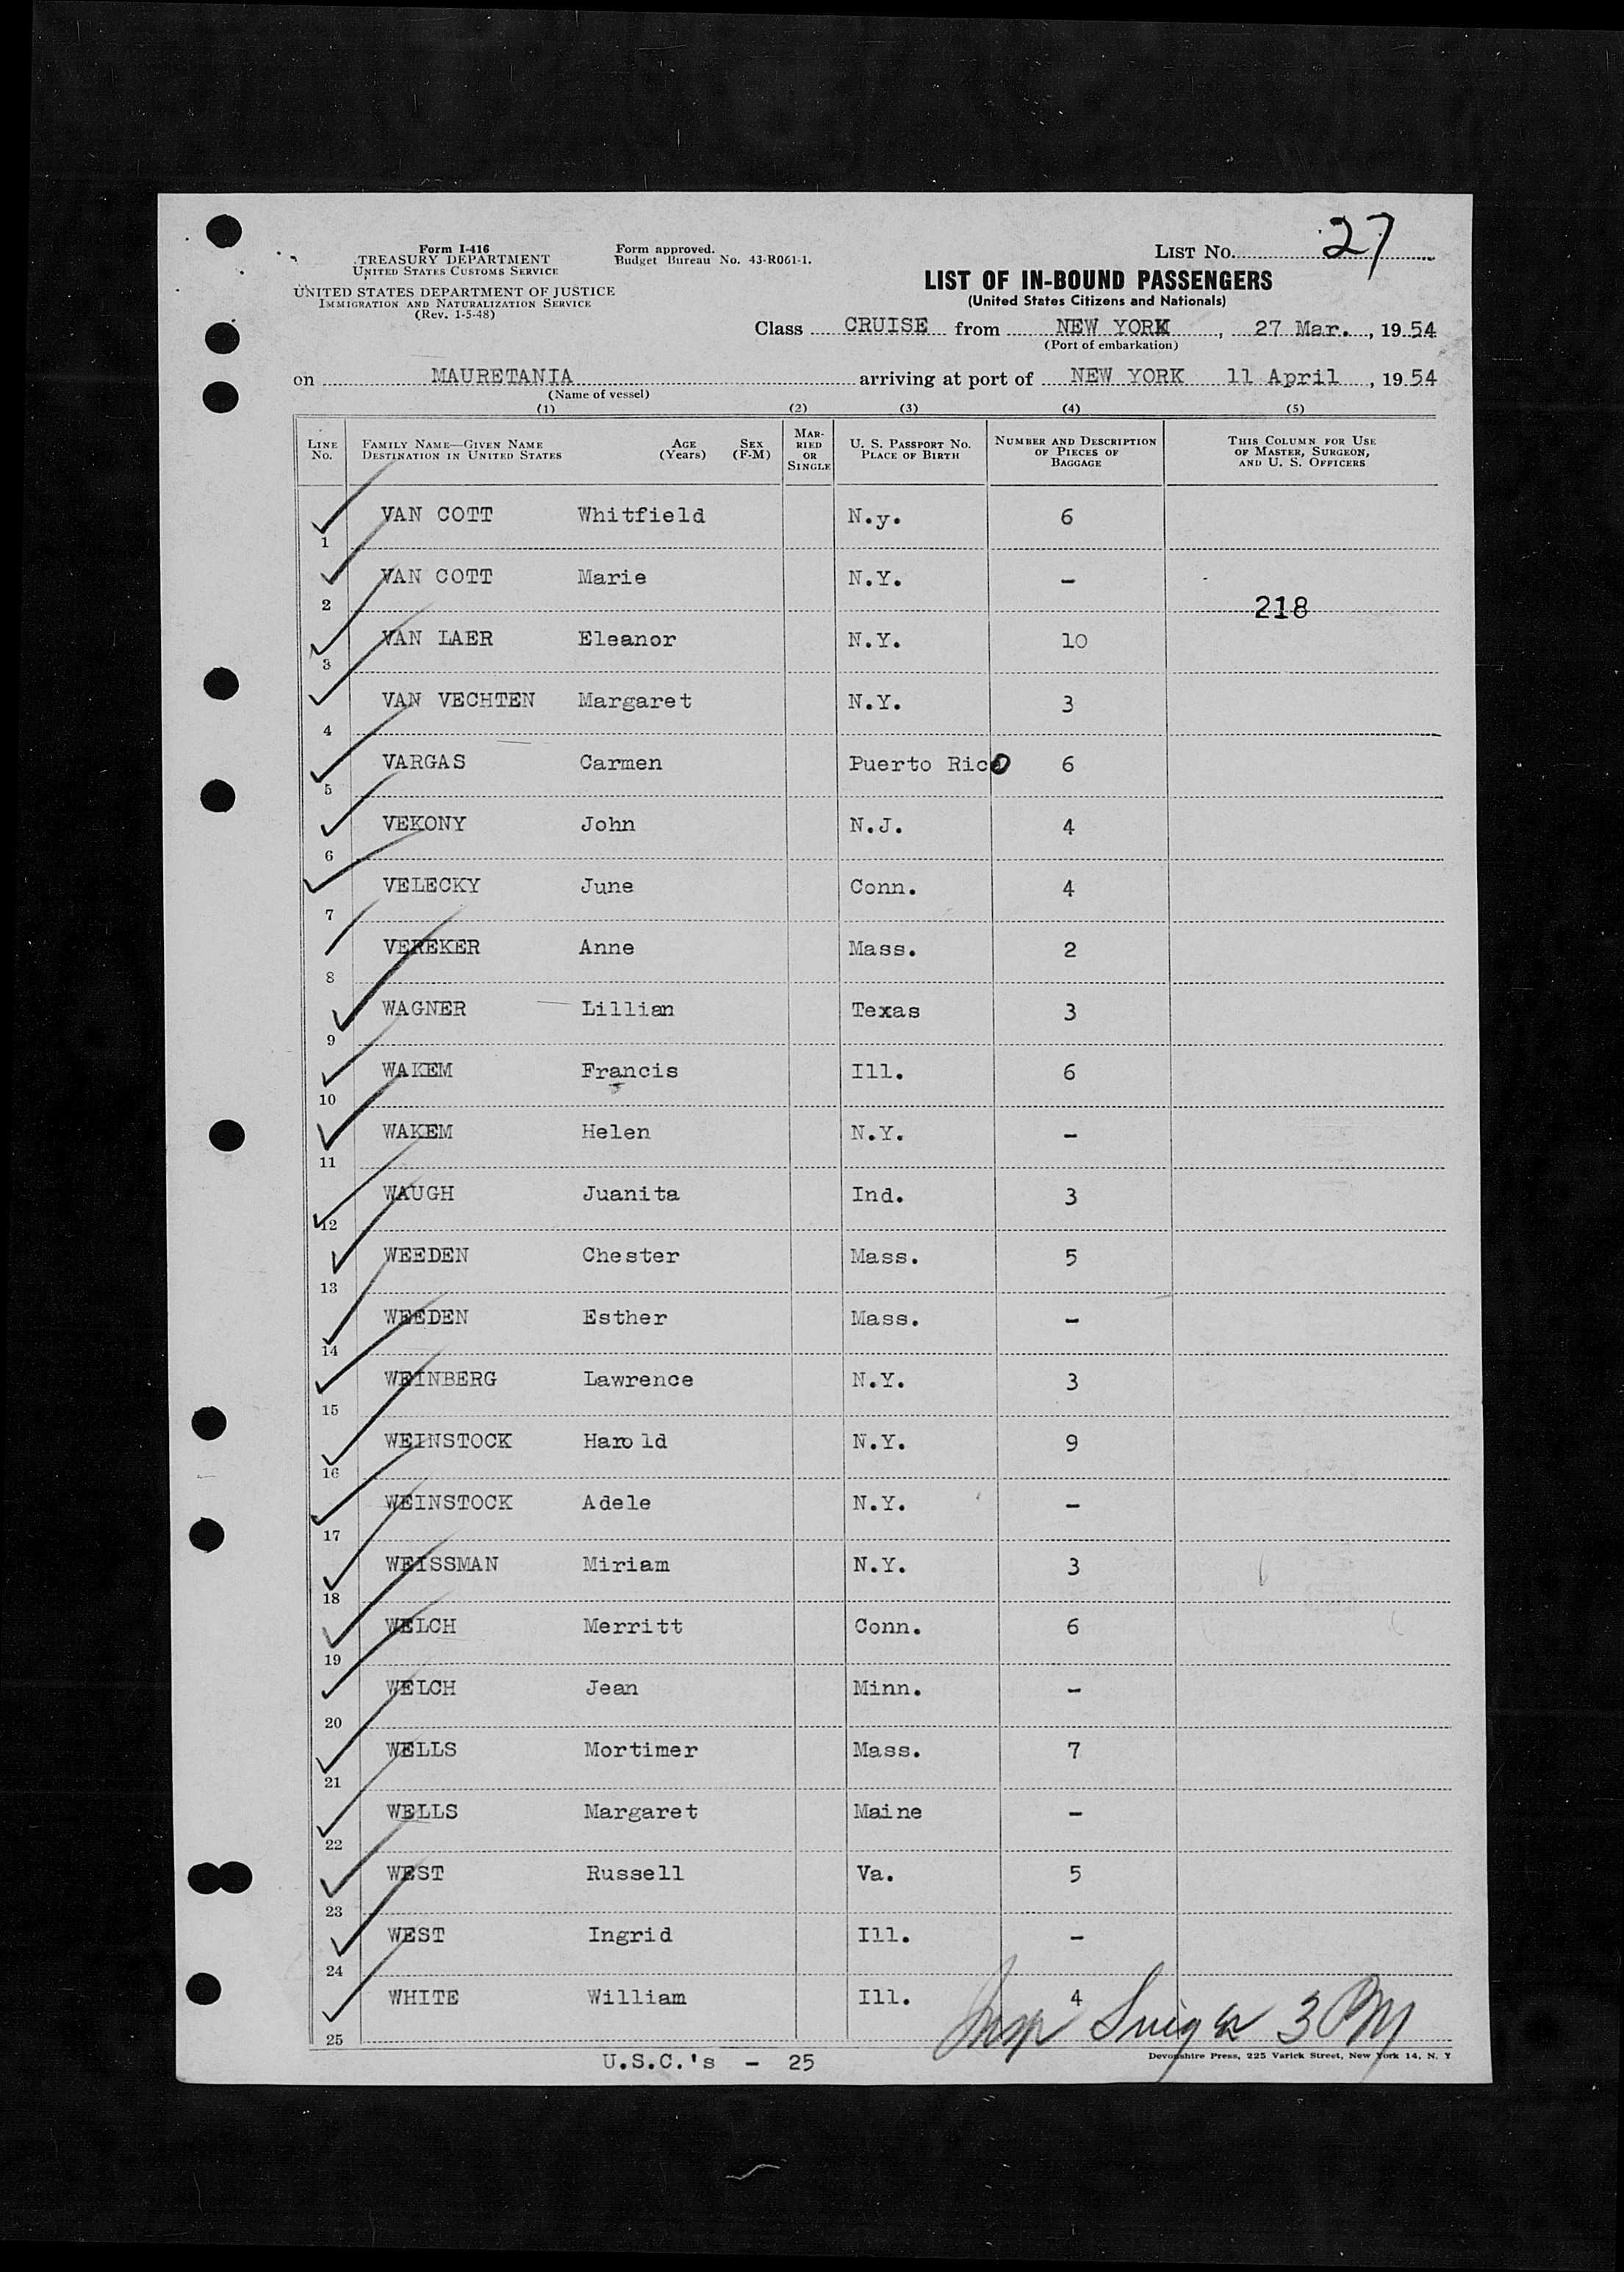 27
Form I-416
TREASURY DEPARTMENT
UNITED STATES CUSTOMS SERVICE
UNITED STATES DEPARTMENT OF JUSTICE
IMMIGRATION AND NATURALIZATION SERVICE
(Rev. 1-5-48)
Form approved.
Budget Bureau No. 43-R061-1.
LIST NO.
LIST OF IN-BOUND PASSENGERS
(United States Citizens and Nationals)
Class CRUISE from NEW YORK, 27 Mar., 1954
(Port of embarkation)
on MAURETANIA arriving at port of NEW YORK 11 April, 1954
(Name of vessel)
(1) (2) (3) (4) (5)
LINE NO. FAMILY NAME—GIVEN NAME DESTINATION IN UNITED STATES AGE (Years) SEX (F-M) MARRIED OR SINGLE U. S. PASSPORT NO. PLACE OF BIRTH NUMBER AND DESCRIPTION OF PIECES OF BAGGAGE THIS COLUMN FOR USE OF MASTER, SURGEON, AND U. S. OFFICERS
1 VAN COTT Whitfield N.y. 6
2 VAN COTT Marie N.Y. –
218
3 VAN LAER Eleanor N.Y. 10
4 VAN VECHTEN Margaret N.Y. 3
5 VARGAS Carmen Puerto Rico 6
6 VEKONY John N.J. 4
7 VELECKY June Conn. 4
8 VEREKER Anne Mass. 2
9 WAGNER Lillian Texas 3
10 WAKEM Francis Ill. 6
11 WAKEM Helen N.Y. –
12 WAUGH Juanita Ind. 3
13 WEEDEN Chester Mass. 5
14 WEEDEN Esther Mass. –
15 WEINBERG Lawrence N.Y. 3
16 WEINSTOCK Harold N.Y. 9
17 WEINSTOCK Adele N.Y. –
18 WEISSMAN Miriam N.Y. 3
19 WELCH Merritt Conn. 6
20 WELCH Jean Minn. –
21 WELLS Mortimer Mass. 7
22 WELLS Margaret Maine –
23 WEST Russell Va. 5
24 WEST Ingrid Ill. –
25 WHITE William Ill. 4
Insp 3 PM
U.S.C.'s – 25
Devonshire Press, 225 Varick Street, New York 14, N. Y